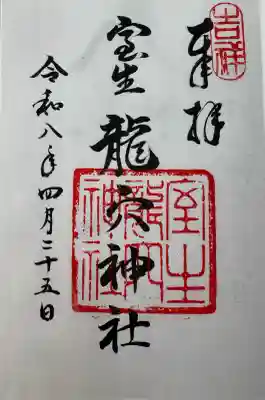 吉祥
奉拝
室生龍穴神社
室生龍穴神社
令和八年四月二十五日